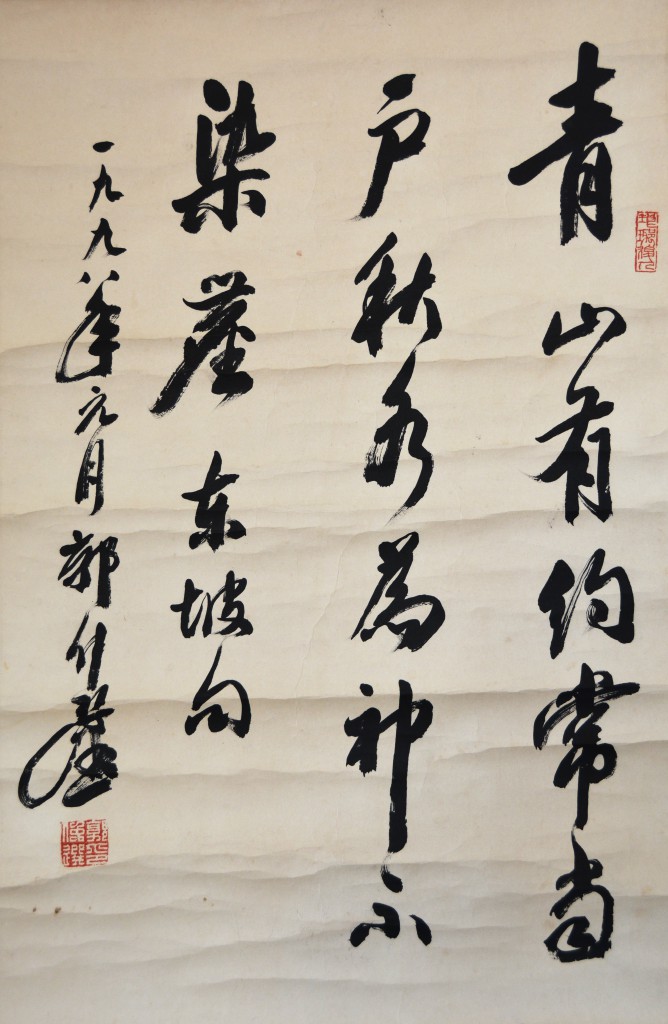 青山有约常當
户秋水為神不
染塵 东坡句
一九九八年元月郭仲選